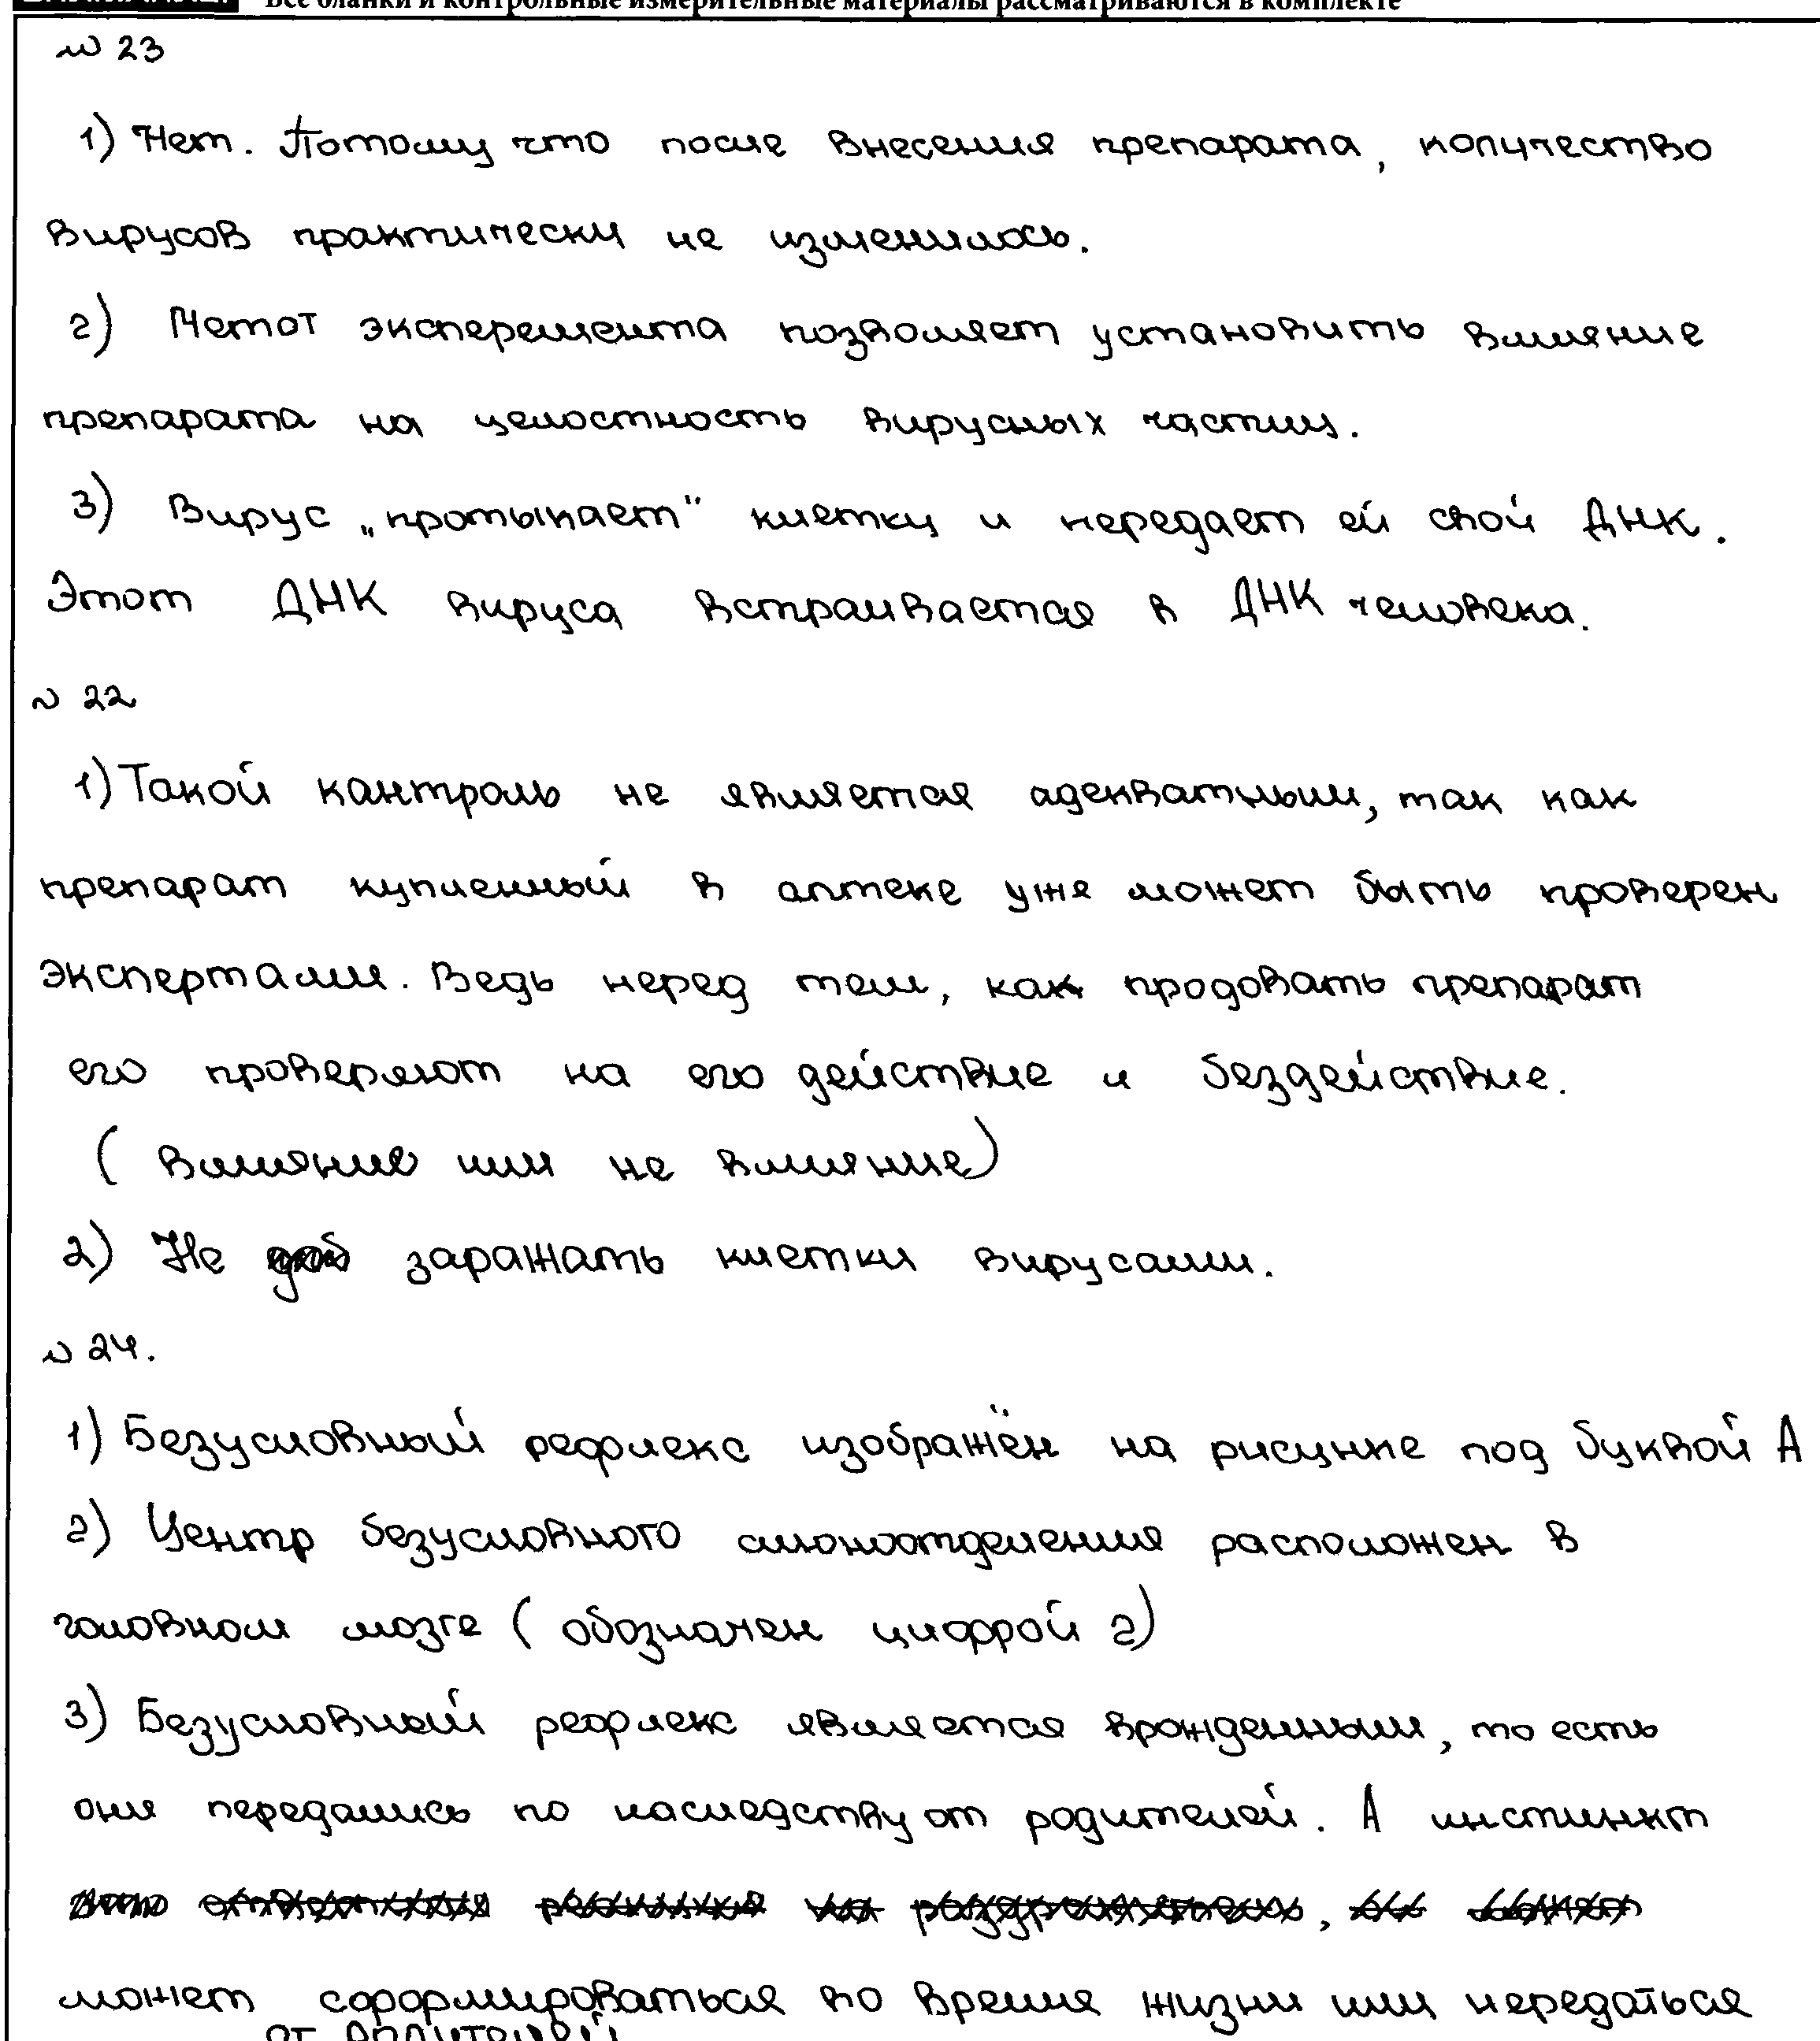 Все бланки и контрольные измерительные материалы рассматриваются в комплекте
№ 23
1) Нет. Потому что после внесения препарата, количество
вирусов практически не изменилось.
2) Метот эксперемента позволяет установить влияние
препарата на целостность вирусных частиц.
3) Вирус „протыкает" клетку и передает ей свой ДНК.
Этот ДНК вируса встраивается в ДНК человека.
№ 22
1) Такой кантроль не является адекватным, так как
препарат купленный в аптеке уже может быть проверен
экспертами. Ведь перед тем, как продовать препарат
его проверяют на его действие и бездействие.
( влияние или не влияние)
2) Не заражать клетки вирусами.
№ 24.
1) Безусловный рефлекс изображён на рисунке под буквой А
2) Центр безусловного слюноотделения расположен в
головном мозге ( обозначен цифрой 2)
3) Безусловный рефлекс является врожденным, то есть
они передались по наследству от родителей. А инстинкт
может сформироваться во время жизни или передаться
от родителей